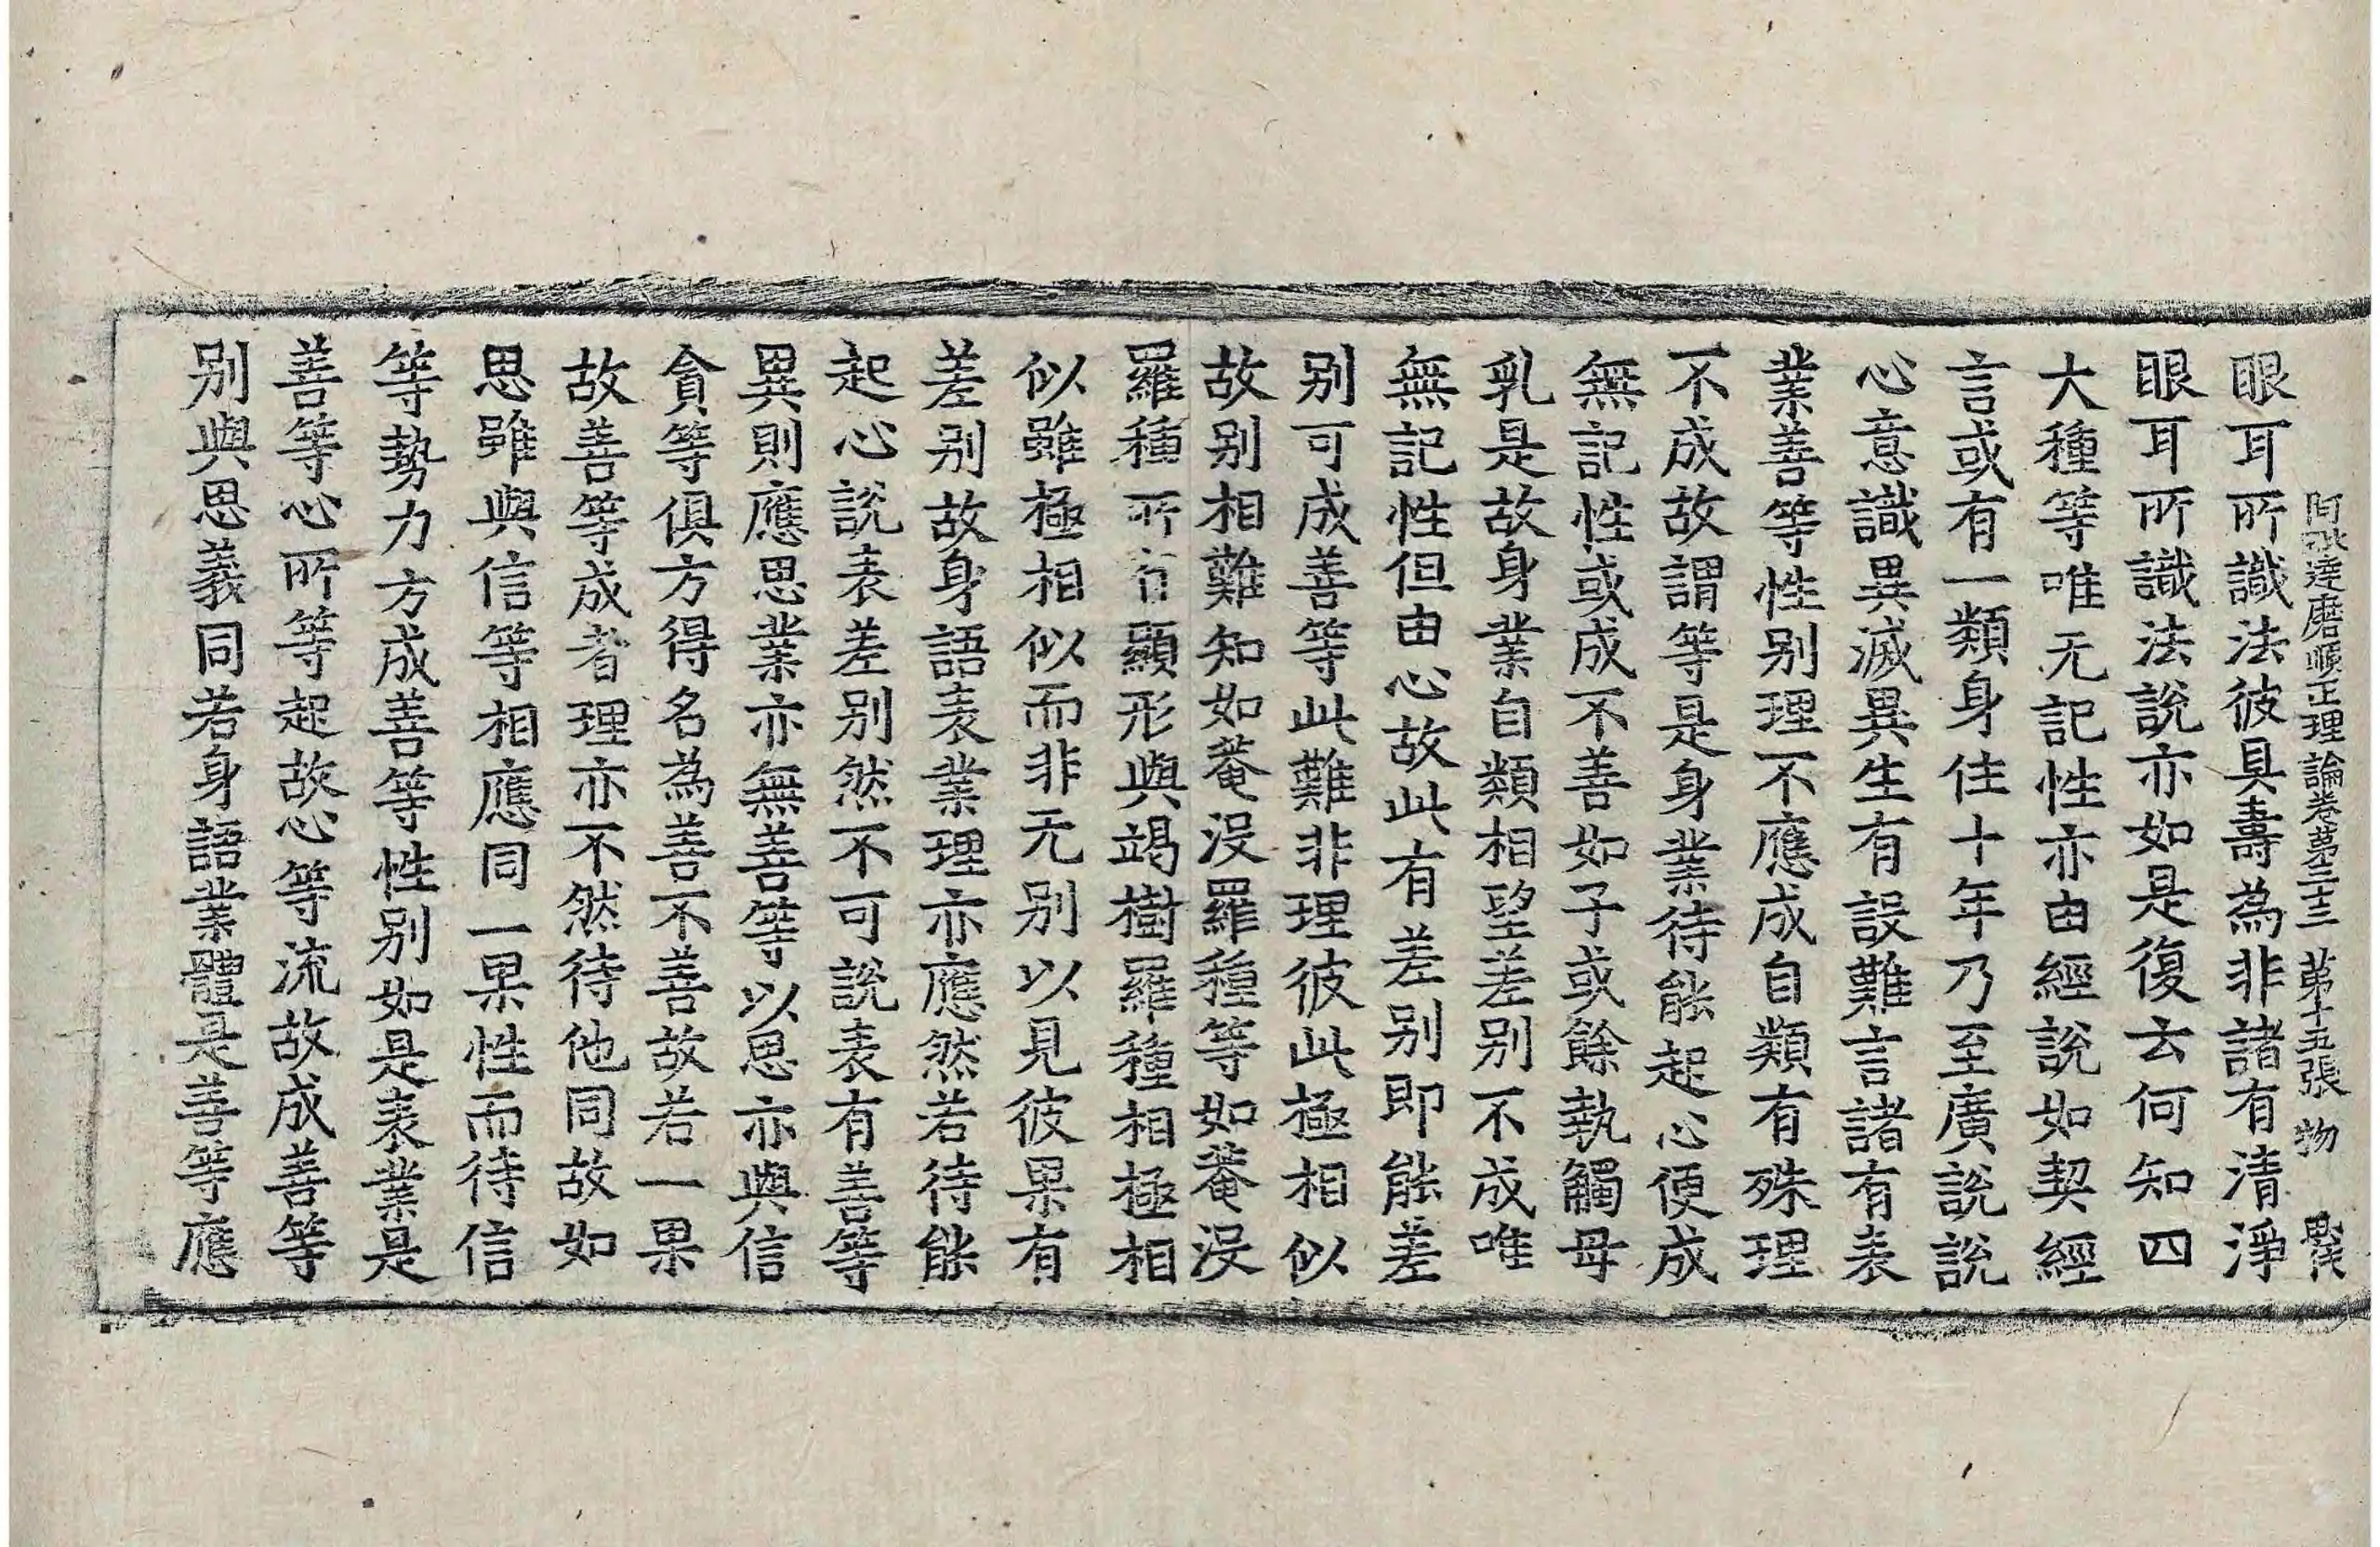 阿毗達磨順正理論卷第三十三 第十五張 物
眼耳所識法彼具壽為非諸有清淨
眼耳所識法說亦如是復云何知四
大種等唯无記性亦由經說如契經
言或有一類身住十年乃至廣說說
心意識異滅異生有設難言諸有表
業善等性別理不應成自類有殊理
不成故謂等是身業待能起心便成
無記性或成不善如子或餘執觸母
乳是故身業自類相望差別不成唯
無記性但由心故此有差別即能差
別可成善等此難非理彼此極相似
故別相難知如菴沒羅種等如菴沒
羅種所有顯形與竭樹羅種相極相
似雖極相似而非无別以見彼果有
差別故身語表業理亦應然若待能
起心說表差別然不可說表有善等
異則應思業亦無善等以思亦與信
貪等俱方得名為善不善故若一果
故善等成者理亦不然待他同故如
思雖與信等相應同一果性而待信
等勢力方成善等性別如是表業是
善等心所等起故心等流故成善等
別與思義同若身語業體是善等應